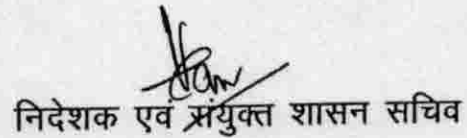 निदेशक एवं संयुक्त शासन सचिव